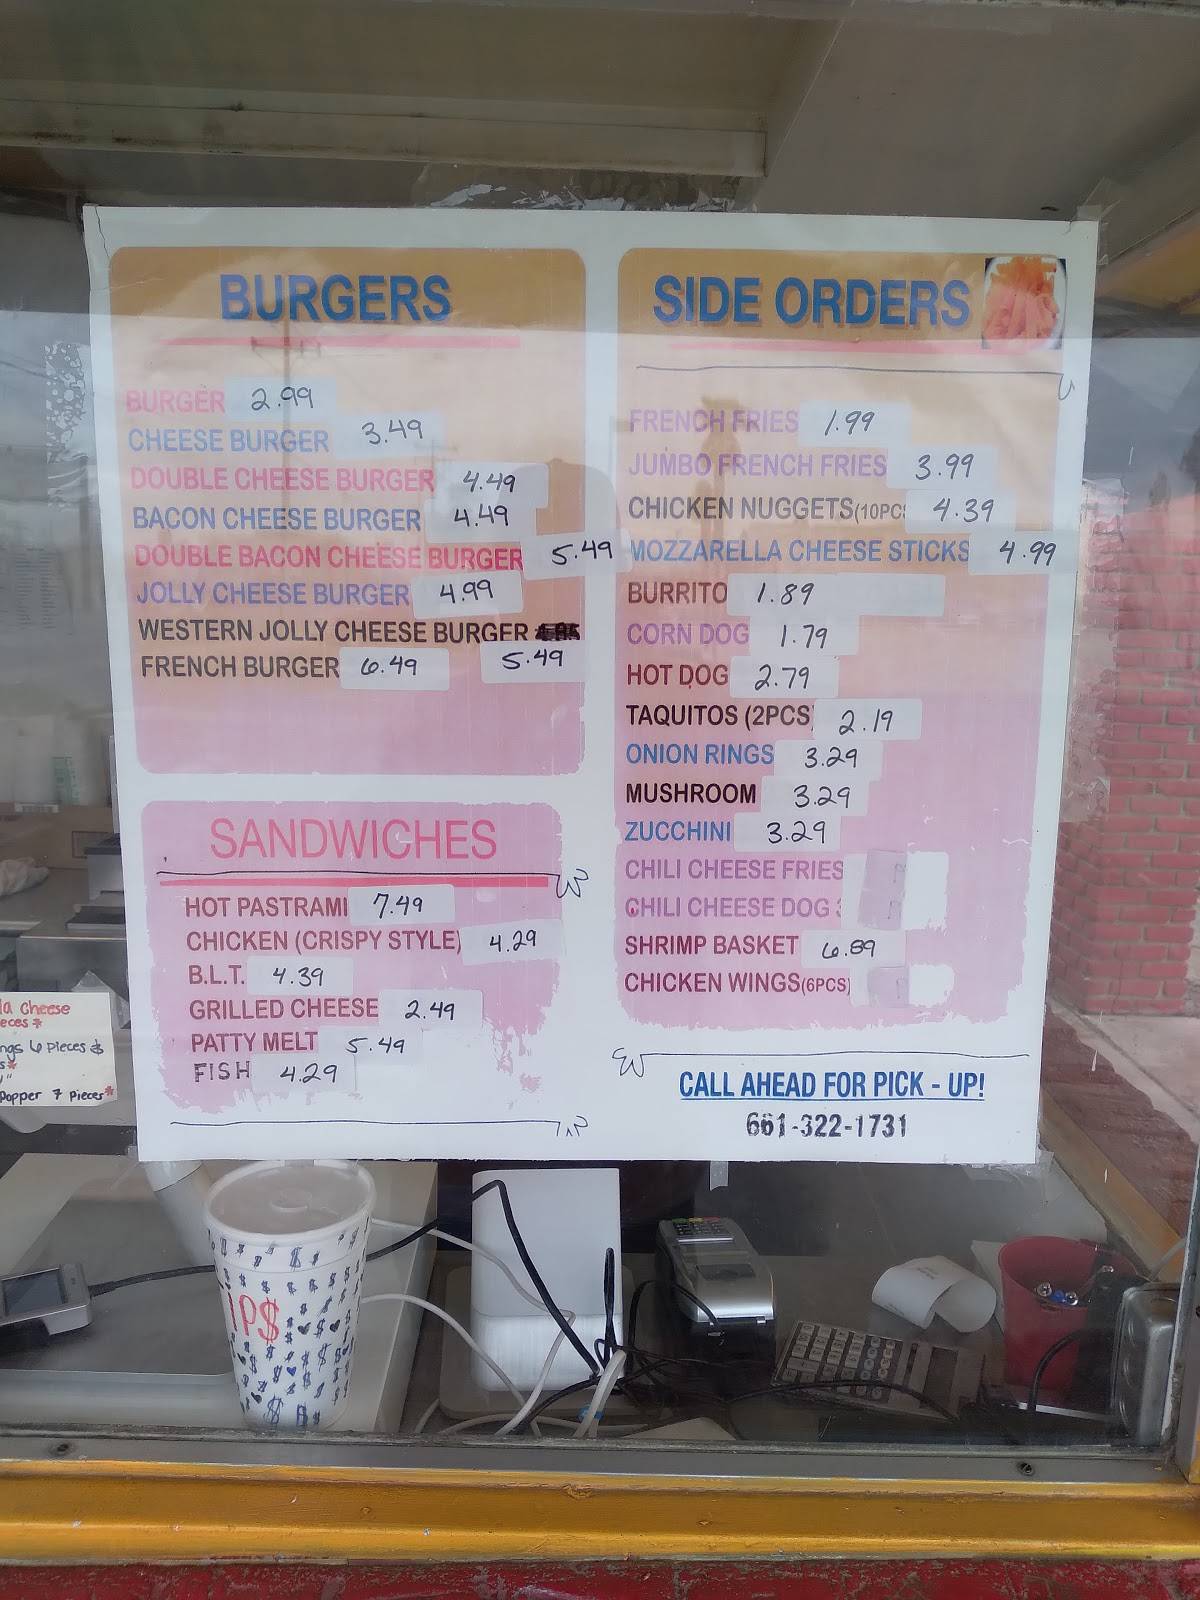 BURGERS
BURGER 2.99
CHEESE BURGER 3.49
DOUBLE CHEESE BURGER 4.49
BACON CHEESE BURGER 4.49
DOUBLE BACON CHEESE BURGER 5.49
JOLLY CHEESE BURGER 4.99
WESTERN JOLLY CHEESE BURGER 5.49
FRENCH BURGER 6.49
SANDWICHES
HOT PASTRAMI 7.49
CHICKEN (CRISPY STYLE) 4.29
B.L.T. 4.39
GRILLED CHEESE 2.49
PATTY MELT 5.49
FISH 4.29
SIDE ORDERS
FRENCH FRIES 1.99
JUMBO FRENCH FRIES 3.99
CHICKEN NUGGETS(10PC 4.39
MOZZARELLA CHEESE STICKS 4.99
BURRITO 1.89
CORN DOG 1.79
HOT DOG 2.79
TAQUITOS (2PCS) 2.19
ONION RINGS 3.29
MUSHROOM 3.29
ZUCCHINI 3.29
CHILI CHEESE FRIES
CHILI CHEESE DOG
SHRIMP BASKET 6.89
CHICKEN WINGS(6PCS)
CALL AHEAD FOR PICK - UP!
661-322-1731
la Cheese
eces*
ngs 6 Pieces &
s*
Popper 7 Pieces*
IP$